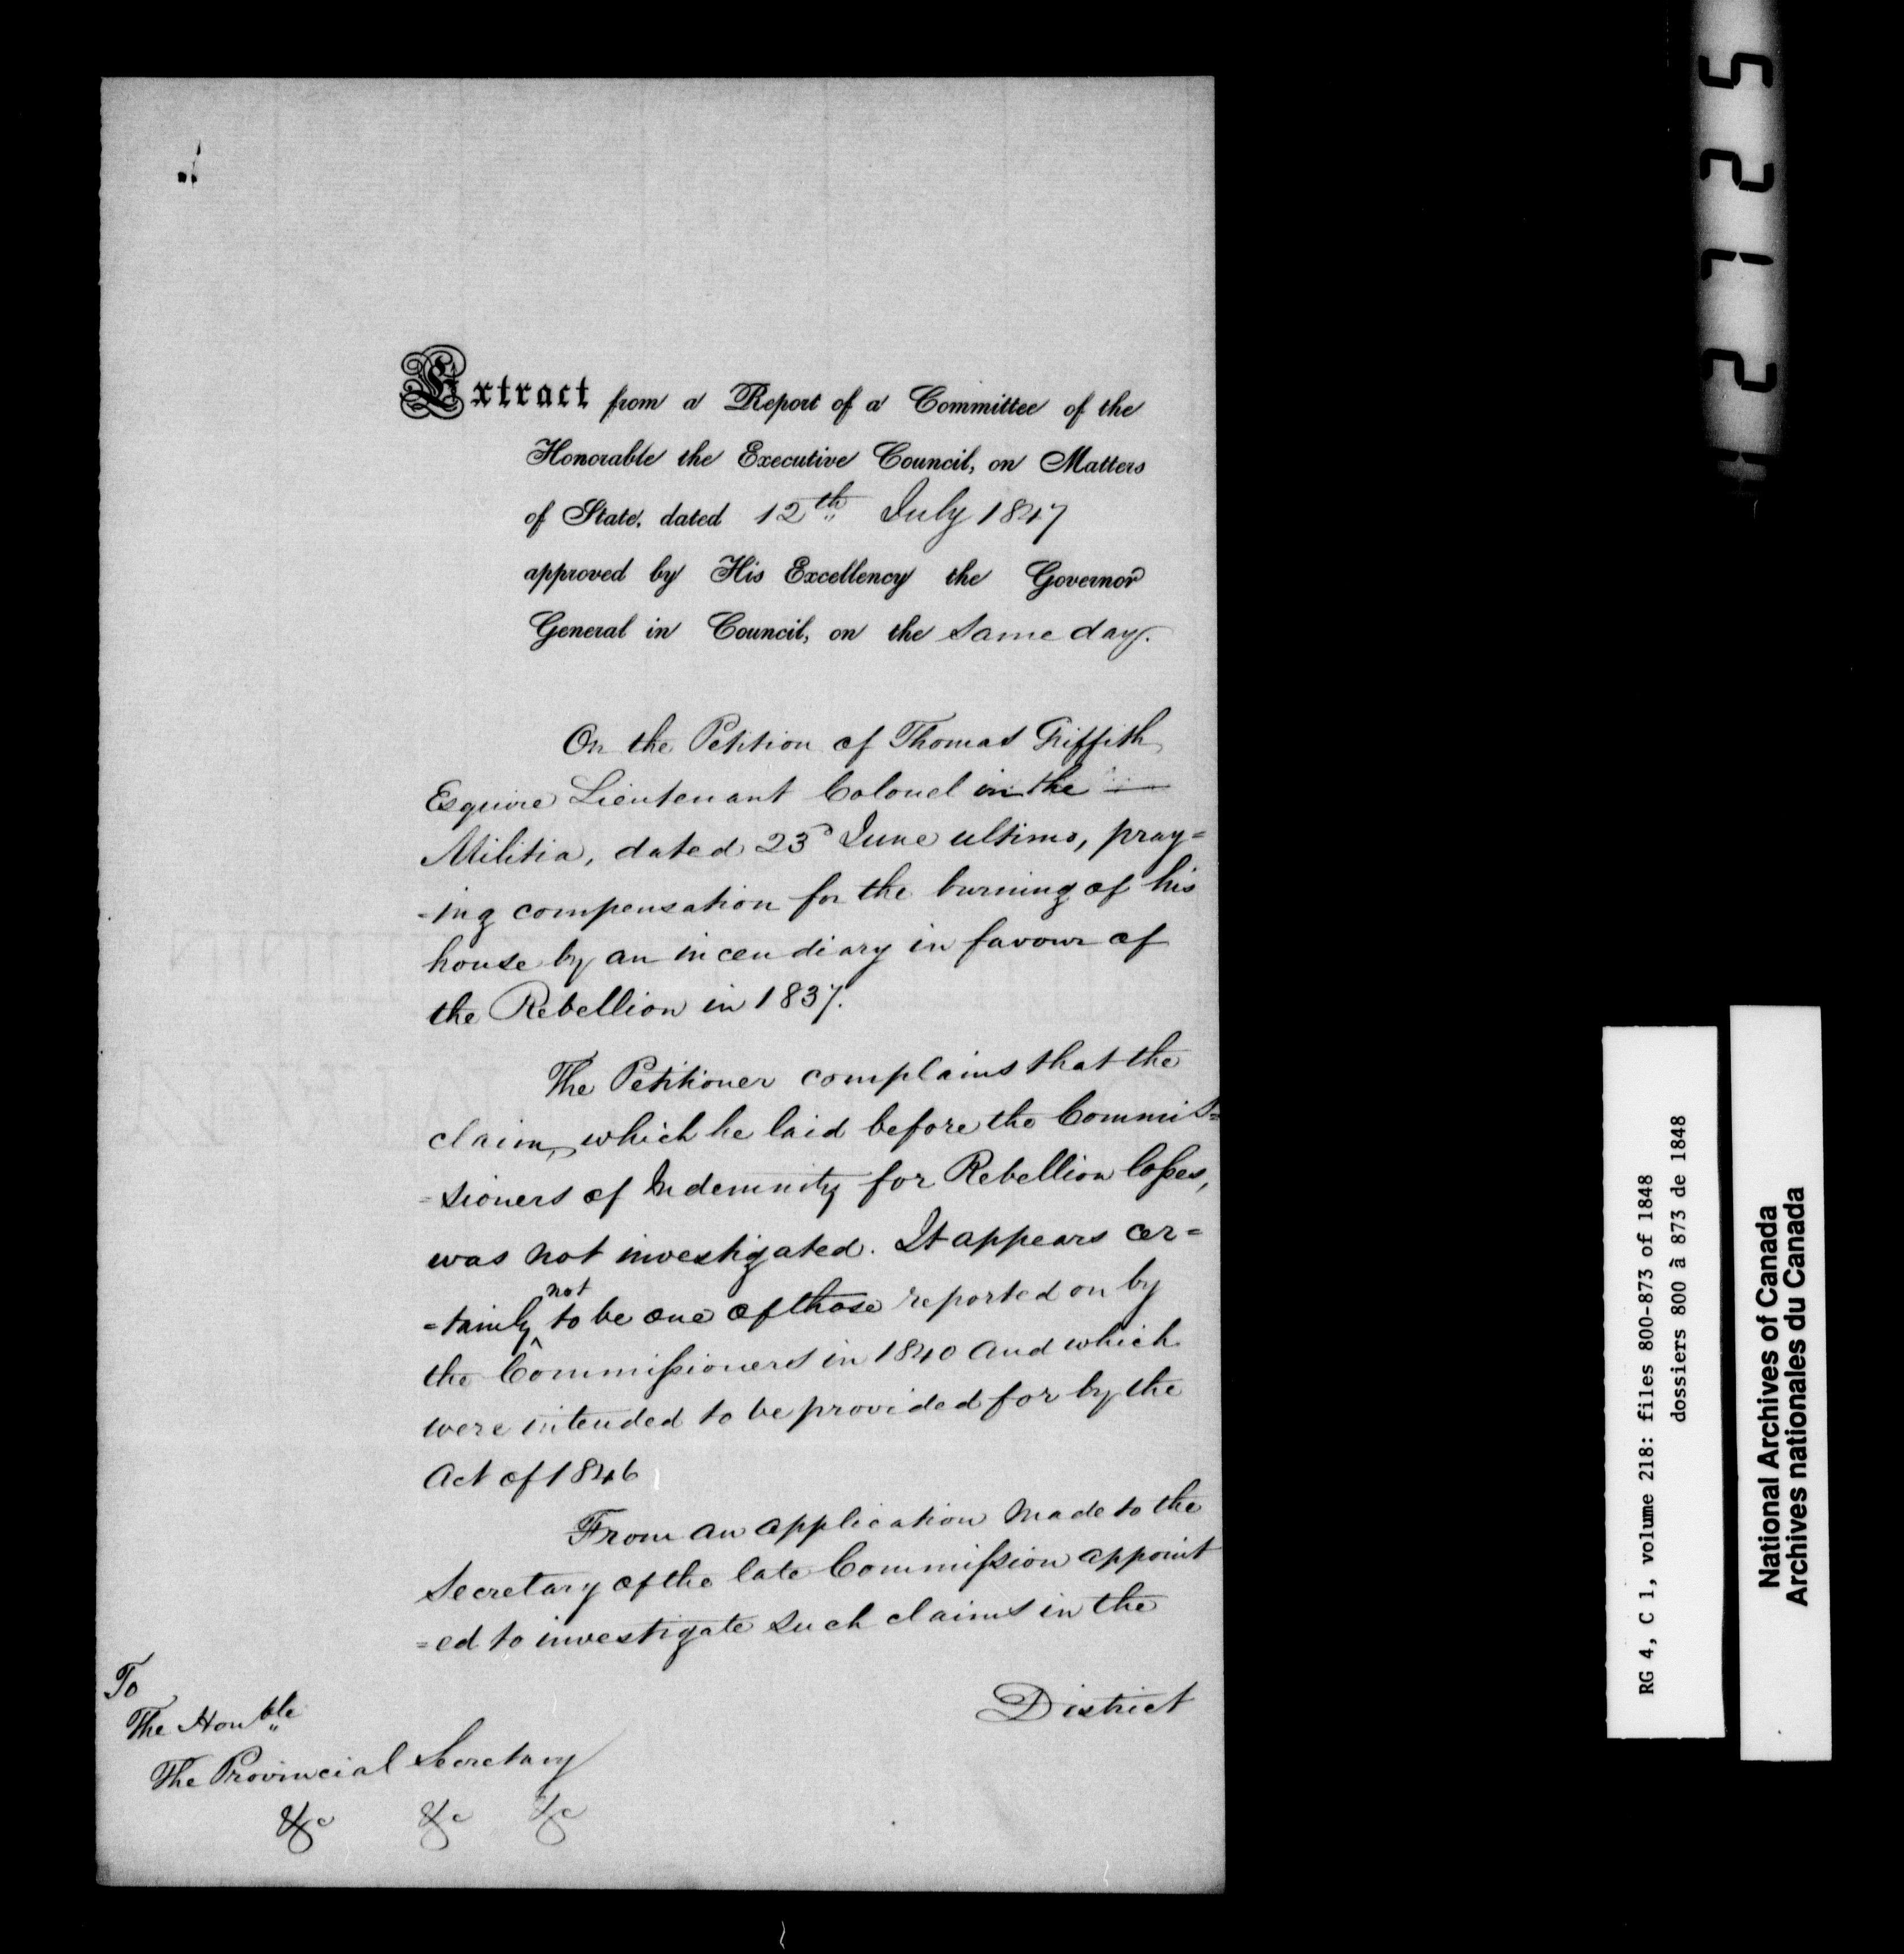 Extract from a Report of a Committee of the
Honorable the Executive Council, on Matters
of State, dated 12th July 1847
approved by His Excellency the Governor
General in Council, on the same day.
On the Petition of Thomas Griffith
Esquire Lieutenant Colonel in the —
Militia, dated 23d June ultimo, pray=
-ing compensation for the burning of his
house by an incendiary in favour of
the Rebellion in 1837.
The Petitioner complains that the
claim, which he laid before the Commis=
=sioners of Indemnity for Rebellion losses,
was not investigated. It appears cer=
not
=tainly ^ to be one of those reported on by
the Commissioners in 1840 and which
were intended to be provided for by the
Act of 1846
From an application made to the
Secretary of the late Commission appoint
=ed to investigate such claims in the
District
To
The Honble
The Provincial Secretary
&c &c &c
5
2
1
2
1
RG 4, C 1, volume 218: files 800-873 of 1848
dossiers 800 à 873 de 1848
National Archives of Canada
Archives nationales du Canada